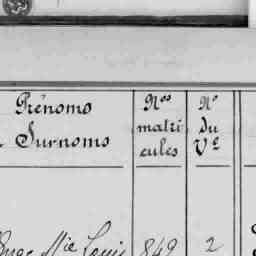 Prénoms
Surnoms
Nos
matri
cules
No
du
Vᵉ
Mie Louis 849 2